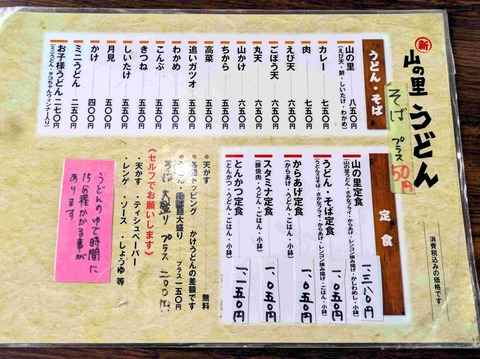 新 山の里うどん
そば プラス 50円
消費税込みの価格です
うどん・そば
山の里 八五〇円
(えび天・餅・しいたけ・わかめ)
カレー 七五〇円
肉 七五〇円
えび天 七五〇円
ごぼう天 六五〇円
丸天 六五〇円
山かけ 六五〇円
ちから 五五〇円
高菜 五五〇円
追いガツオ 五五〇円
わかめ 五五〇円
こんぶ 五五〇円
きつね 五五〇円
しいたけ 五五〇円
月見 五〇〇円
かけ 四〇〇円
ミニうどん 二五〇円
お子様うどん 二七〇円
(ミニうどん・タコちゃんウィンナー入り)
定食
山の里定食 一、三八〇円
うどん・そば定食 一、〇五〇円
からあげ定食 一、〇五〇円
(からあげ・うどん・ごはん・小鉢)
スタミナ定食 一、〇五〇円
(豚焼肉・うどん・ごはん・小鉢)
とんかつ定食 一、一五〇円
(とんかつ・うどん・ごはん・小鉢)
※天かす 無料
トッピング かけうどんの差額です
大盛り プラス一五〇円
そば大盛り プラス 二〇〇円
《セルフでお願いします》
・天かす ・ティシュペーパー
・レンゲ ・ソース ・しょうゆ 等
うどんのゆで時間に
15分程かかる事が
あります。